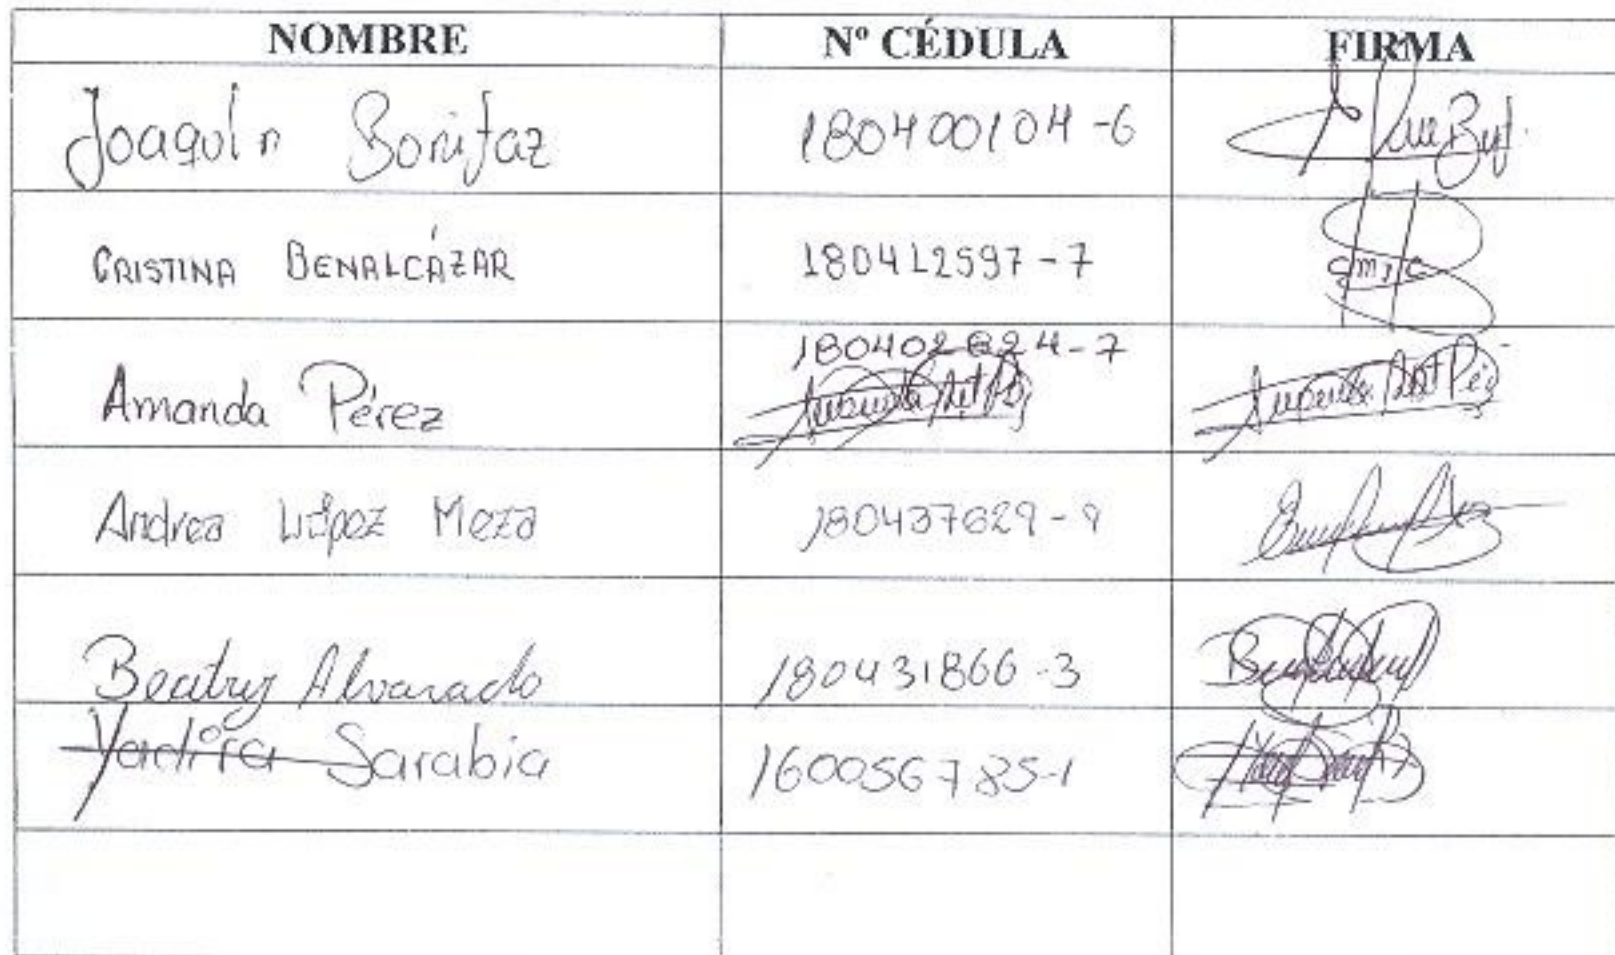 NOMBRE Nº CÉDULA FIRMA
Joaquín Bonifaz 180400104-6
CRISTINA BENALCÁZAR 180412597-7
Amanda Pérez 180402824-7
Andrea López Meza 180437629-9
Beatriz Alvarado 180431866-3
Yadira Sarabia 160056785-1